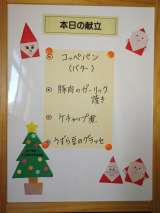 本日の献立
コッペパン
(バター)
豚肉のガーリック
焼き
ケチャップ煮
うずら豆のグラッセ